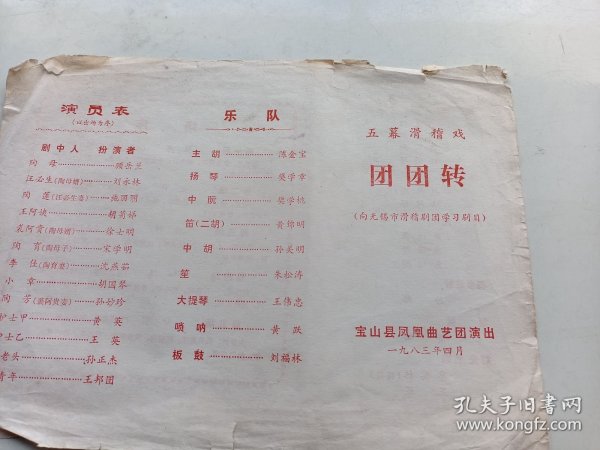 演员表
(以出场为序)
剧中人 扮演者
陶母……顾岳兰
汪必生(陶母婿)……刘永林
陶莲(汪必生妻)……施丽丽
王阿姨……胡菊娇
裘阿贵(陶母婿)……徐士明
陶育(陶母子)……宋学明
李仕(陶育妻)……沈燕茹
小章……胡国琴
陶芳(裘阿贵妻)……孙妙珍
护士甲……黄英
护士乙……王英
老头……孙正杰
青年……王邦团
乐队
主胡……薄金宝
扬琴……樊学章
中阮……樊学桃
笛(二胡)……黄锦明
中胡……孙美明
笙……朱松涛
大提琴……王伟忠
唢呐……黄跃
板鼓……刘福林
五幕滑稽戏
团团转
(向无锡市滑稽剧团学习剧目)
宝山县凤凰曲艺团演出
一九八三年四月
孔夫子旧书网
www.kongfz.com